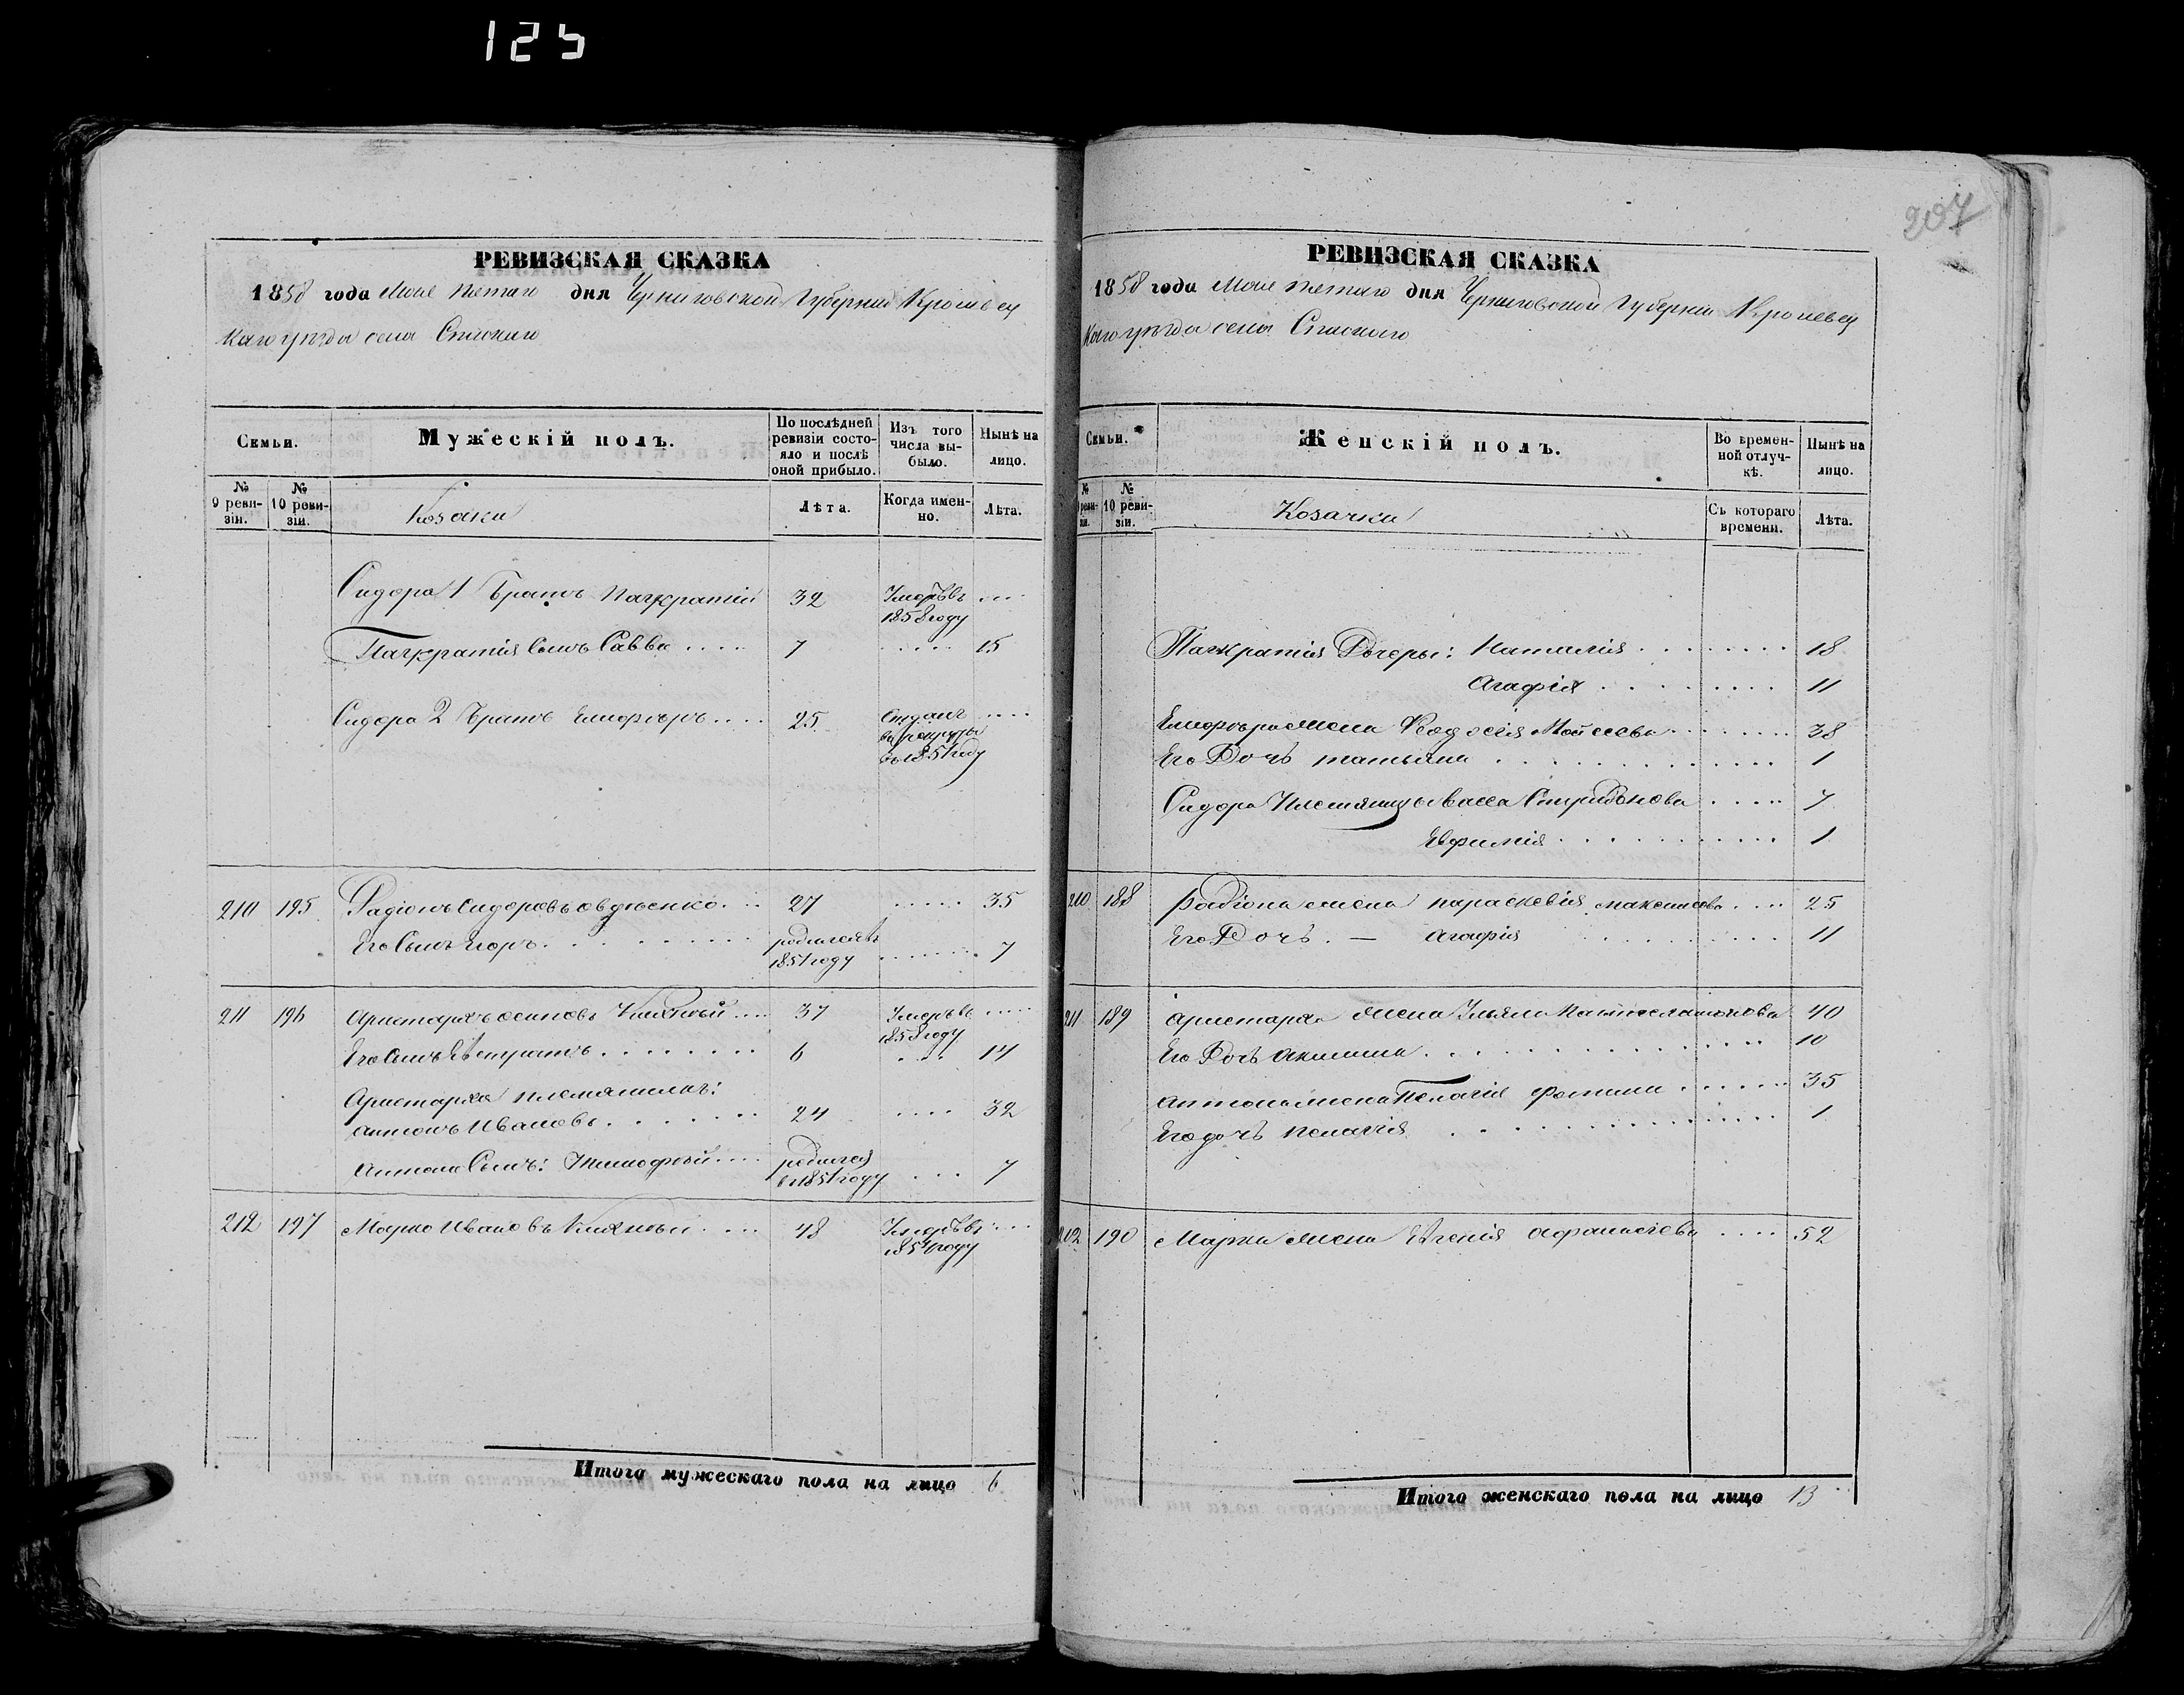 125
207
РЕВИЗСКАЯ СКАЗКА
1858 года Мая пятаго дня Черниговской Губернии Кролевец
каго уезда села Спаскаго
Семьи.
Мужескій полъ.
По послѣдней ревизіи состояло и послѣ оной прибыло.
Изъ того числа выбыло.
Нынѣ на лицо.
№ 9 ревизіи.
№ 10 ревизіи.
Козаки
Лѣта.
Когда именно.
Лѣта.
Сидора 1 Братъ Панкратій 32 Умеръ въ 1858 году
Панкратія Сынъ Савва 7 15
Сидора 2 Братъ Елиферъ 25 Отданъ въ рекруты в 1851 году
210 195 Радіонъ Сидоровъ Овдѣенко 27 35
Его Сынъ Егоръ родился въ 1851 году 7
211 196 Аристархъ Осиповъ 37 Умеръ въ 1858 году
Его Сынъ Евстратъ 6 14
Аристарха племянникъ:
Антонъ Ивановъ 24 32
Антона Сынъ: Тимофей родился в 1851 году 7
212 197 Марко Ивановъ 48 Умеръ въ 1854 году
Итого мужескаго пола на лицо 6
РЕВИЗСКАЯ СКАЗКА
1858 года Мая пятаго дня Черниговской Губернии Кролевец
каго уезда села Спаскаго
Семьи.
Женскій полъ.
Во временной отлучкѣ.
Нынѣ на лицо.
№ ревизіи.
№ 10 ревизіи.
Козачки
Съ котораго времени.
Лѣта.
Панкратія Дочеры: Наталия 18
Агафія 11
Елифера жена Феодосія Мойсеева 38
Его Дочь татьяна 1
Сидора Племянницы Васса Спиридонова 7
Евфимія 1
210 188 Радіона жена параскевія максимова 25
Его Дочь — Агафія 11
211 189 Аристарха жена Ульяна 40
Его Дочь Акилина 10
Антона жена Пелагія фомина 35
Его дочь пелагія 1
212 190 Марка жена Евгенія Афанасіева 52
Итого женскаго пола на лицо 13